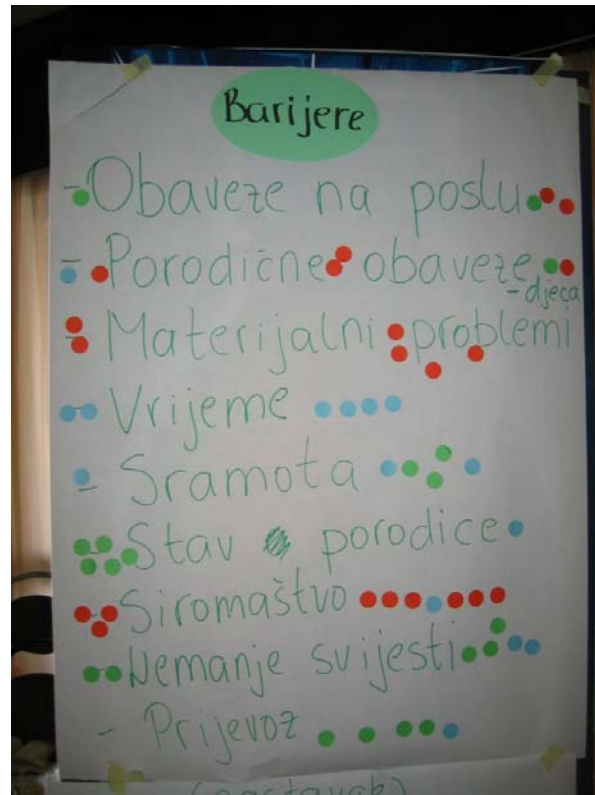 Barijere
- Obaveze na poslu
- Porodične obaveze
- djeca
- Materijalni problemi
- Vrijeme
- Sramota
- Stav porodice
- Siromaštvo
- Nemanje svijesti
- Prijevoz
(nastavak)